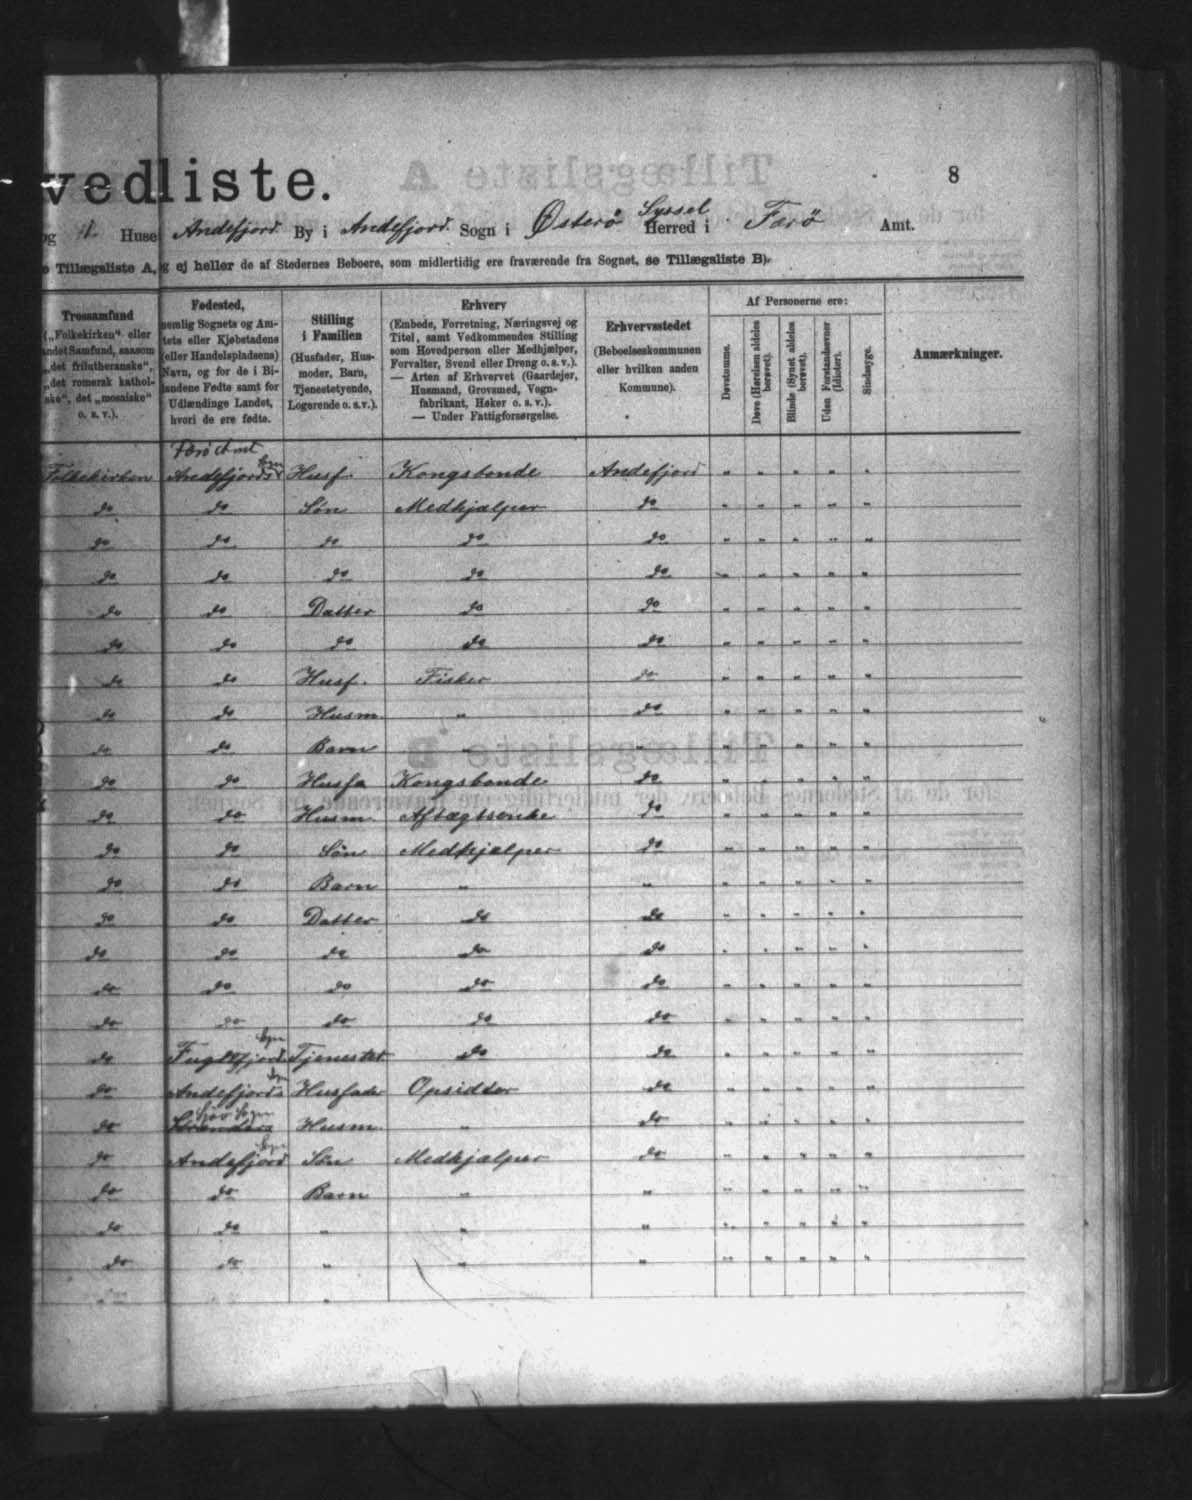 vedliste.
8
og 11. Huse Andefjord By i Andefjord Sogn i Østerø Syssel Herred i Færø Amt.
e Tillægsliste A, og ej heller de af Stedernes Beboere, som midlertidig ere fraværende fra Sognet, se Tillægsliste B).
Trossamfund
(„Folkekirken“ eller
andet Samfund, saasom
„det frilutheranske“,
„det romersk kathol-
ske“, det „mosaiske“
o. s. v.).
Fødested,
nemlig Sognets og Am-
tets eller Kjøbstadens
(eller Handelspladsens)
Navn, og for de i Bi-
landene Fødte samt for
Udlændinge Landet,
hvori de ere fødte.
Stilling
i Familien
(Husfader, Hus-
moder, Barn,
Tjenestetyende,
Logerende o. s. v.).
Erhverv
(Embede, Forretning, Næringsvej og
Titel, samt Vedkommendes Stilling
som Hovedperson eller Medhjælper,
Forvalter, Svend eller Dreng o. s. v.).
— Arten af Erhvervet (Gaardejer,
Husmand, Grovsmed, Vogn-
fabrikant, Høker o. s. v.).
— Under Fattigforsørgelse.
Erhvervsstedet
(Beboelseskommunen
eller hvilken anden
Kommune).
Af Personerne ere:
Døvstumme.
Døve (Hørelsen aldeles
berøvet).
Blinde (Synet aldeles
berøvet).
Uden Forstandsevner
(Idioter).
Sindssyge.
Anmærkninger.
Færø Amt
Folkekirken Andefjords Sogn Husf. Kongsbonde Andefjord " " " " "
do do Søn Medhjælper do " " " " "
do do do do do " " " " "
do do do do do " " " " "
do do Datter do do " " " " "
do do do do do " " " " "
do do Husf. Fisker do " " " " "
do do Husm " do " " " " "
do do Barn " " " " " " "
do do Husfa Kongsbonde do " " " " "
do do Husm. Aftægtsenke do " " " " "
do do Søn Medhjælper do " " " " "
do do Barn " " " " " " "
do do Datter do do " " " " "
do do do do do " " " " "
do do do do do " " " " "
do do do do do " " " " "
do Fuglefjord Sogn Tjenestet do do " " " " "
do Andefjords Sogn Husfader Opsidder do " " " " "
do Husm. " do " " " " "
do Andefjord Sogn Søn Medhjælper do " " " " "
do do Barn " " " " " " "
do do " " " " " " " "
do do " " " " " " " "